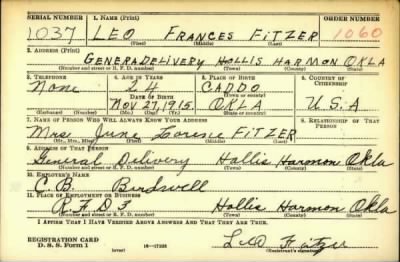 SERIAL NUMBER 1. NAME (Print) ORDER NUMBER
1037 LEO FRANCES FITZER 1060
(First) (Middle) (Last)
2. ADDRESS (Print)
GENERA DELIVERY HOLLIS HARMON OKLA
(Number and street or R. F. D. number) (Town) (County) (State)
3. TELEPHONE 4. AGE IN YEARS 5. PLACE OF BIRTH 6. COUNTRY OF CITIZENSHIP
None 24 CADDO
DATE OF BIRTH (Town or county)
NOV 27, 1915. OKLA U.S.A
(Mo.) (Day) (Yr.) (State or country)
7. NAME OF PERSON WHO WILL ALWAYS KNOW YOUR ADDRESS 8. RELATIONSHIP OF THAT PERSON
Mrs June FITZER
(Mr., Mrs., Miss) (First) (Middle) (Last)
9. ADDRESS OF THAT PERSON
General Delivery Hollis Harmon Okla
(Number and street or R. F. D. number) (Town) (County) (State)
10. EMPLOYER'S NAME
C. B. Birdwell
11. PLACE OF EMPLOYMENT OR BUSINESS
R.F.D 3 Hollis Harmon Okla
(Number and street or R. F. D. number) (Town) (County) (State)
I AFFIRM THAT I HAVE VERIFIED ABOVE ANSWERS AND THAT THEY ARE TRUE.
REGISTRATION CARD
D. S. S. Form 1 (over) 16—17105 Leo Fitzer
(Registrant's signature)